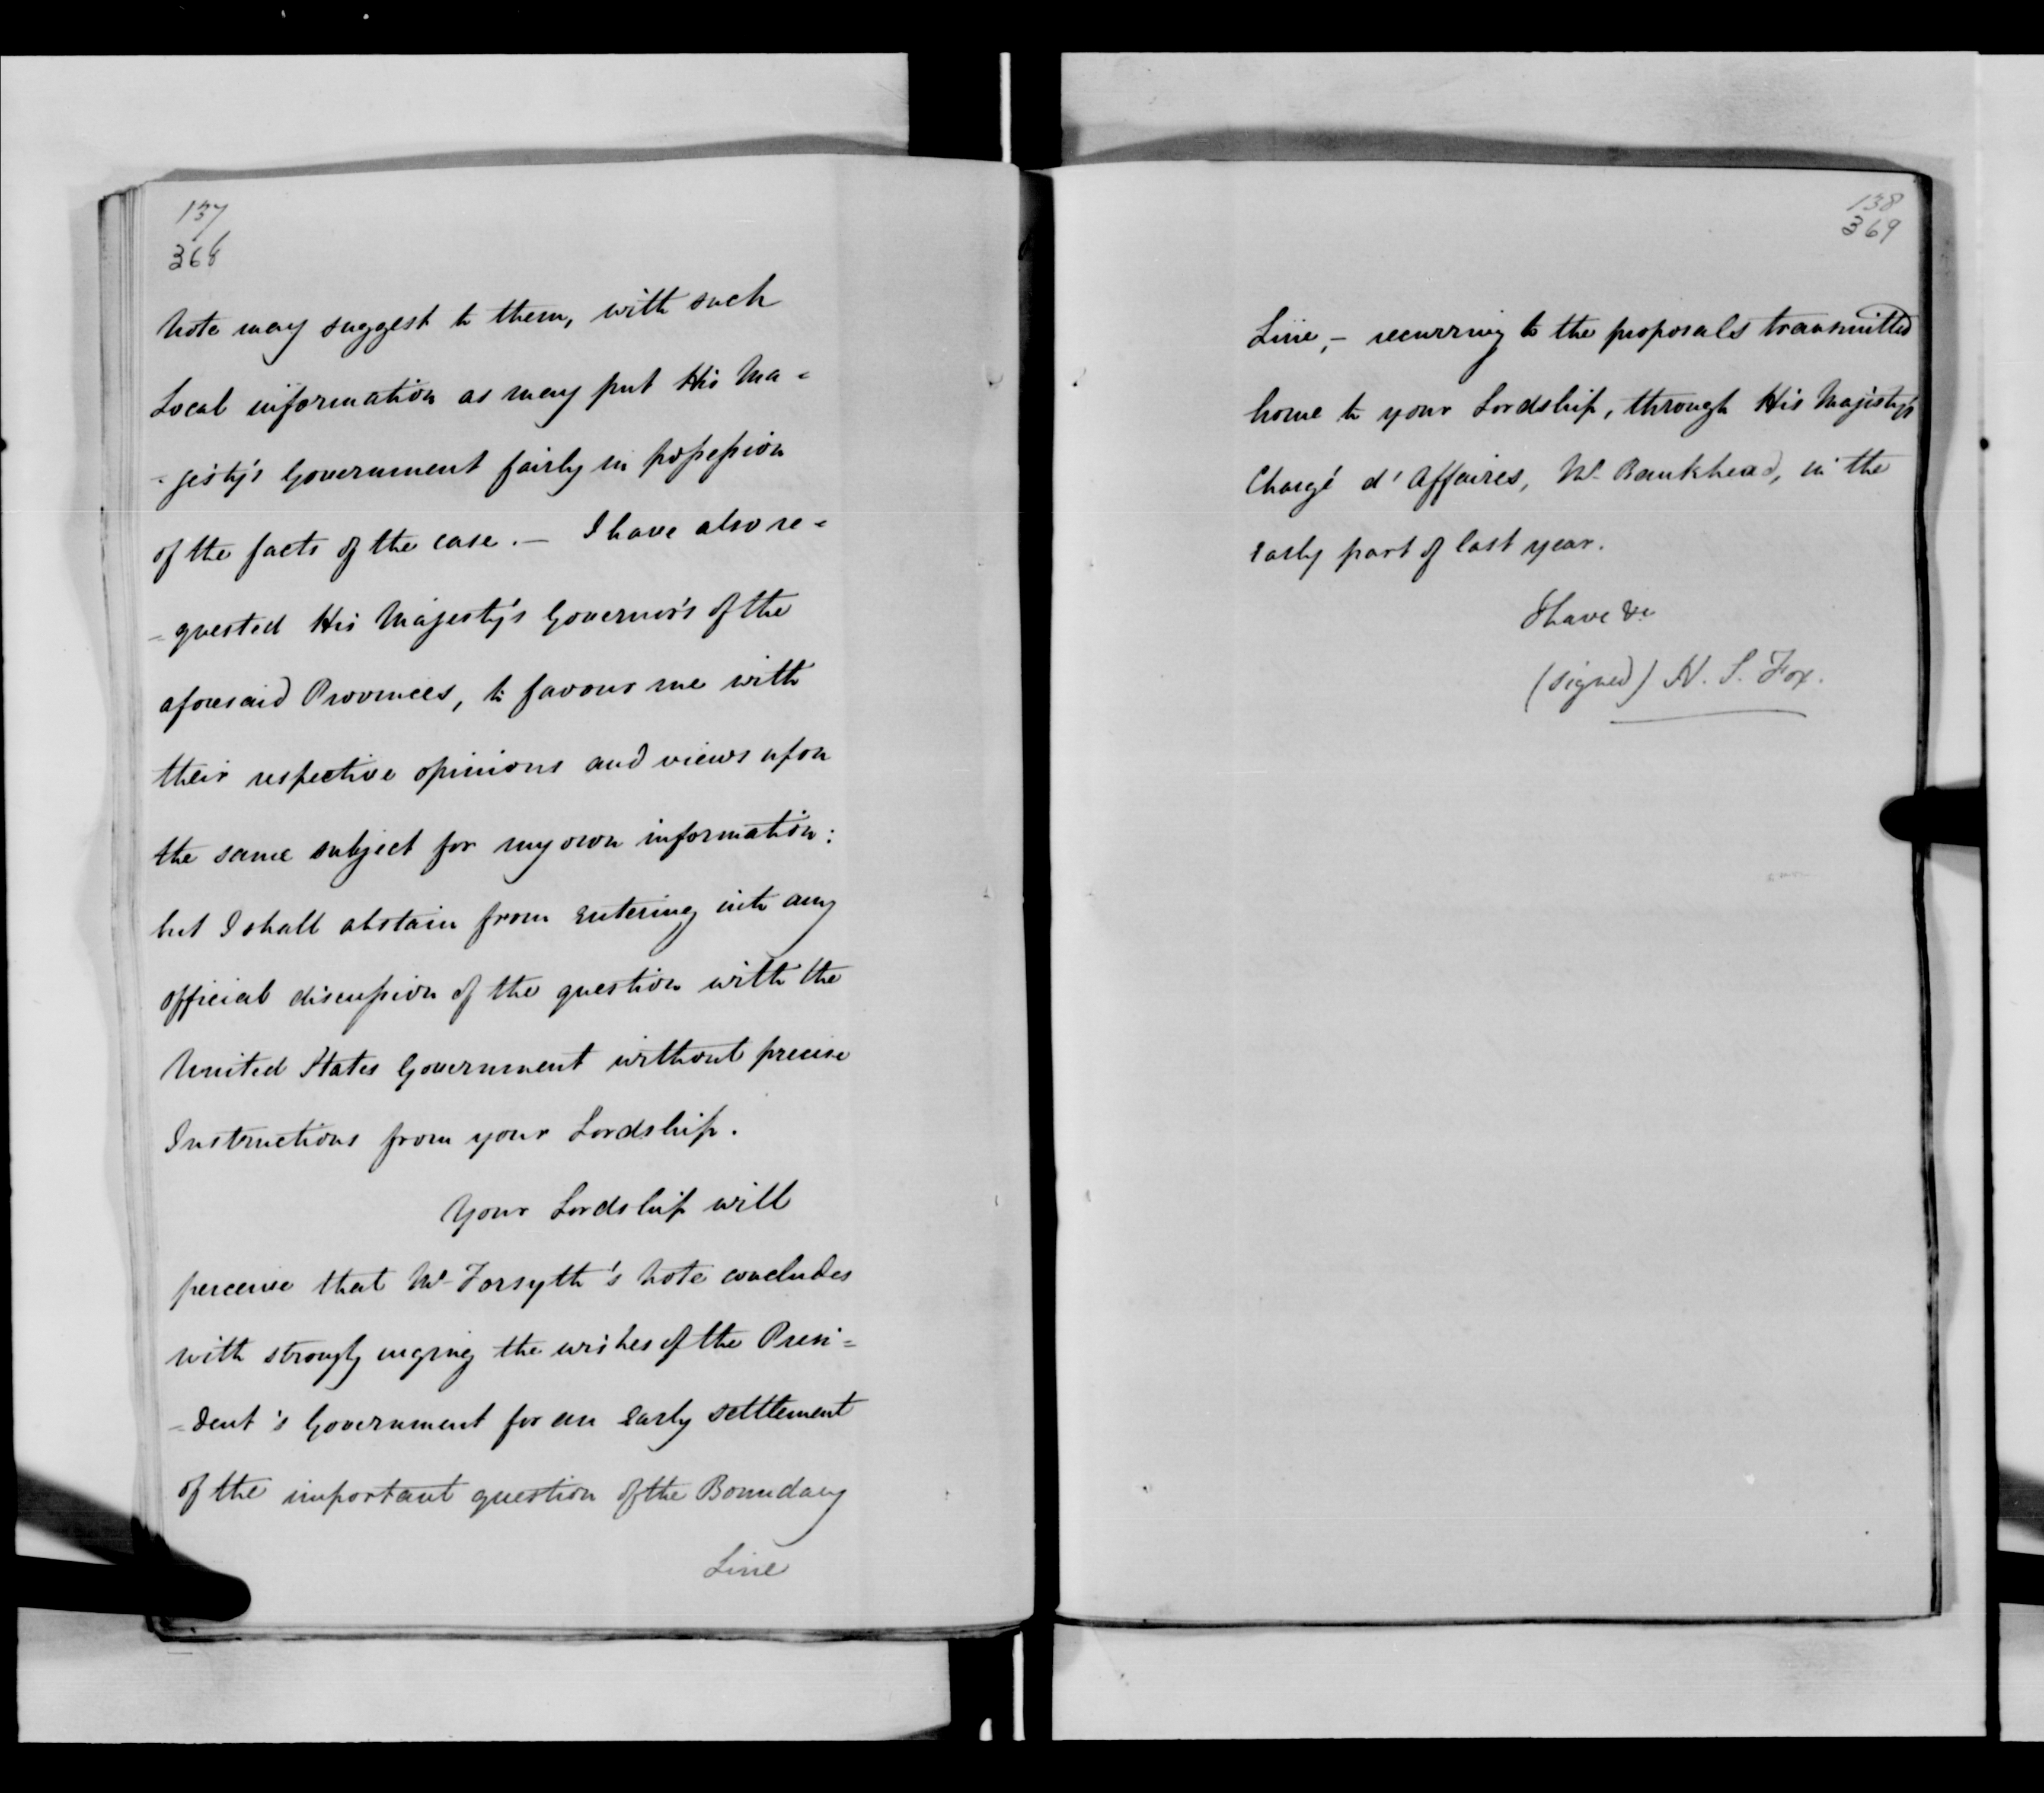 137
368
Note may suggest to them, with such
Local information as may put His Ma=
=jesty's Government fairly in possession
of the facts of the case. — I have also re=
=quested His Majesty's Governor's of the
aforesaid Provinces, to favour me with
their respective opinions and views upon
the same subject for my own information:
but I shall abstain from entering into any
official discussion of the question with the
United States Government without precise
Instructions from your Lordship.
Your Lordship will
perceive that Mr Forsyth's Note concludes
with strongly urging the wishes of the Presi=
=dent's Government for an early settlement
of the important question of the Boundary
Line
138
369
Line, — recurring to the proposals transmitted
home to your Lordship, through His Majesty's
Chargé d'Affaires, Mr Bankhead, in the
early part of last year.
I have &c
(signed) H. S. Fox.